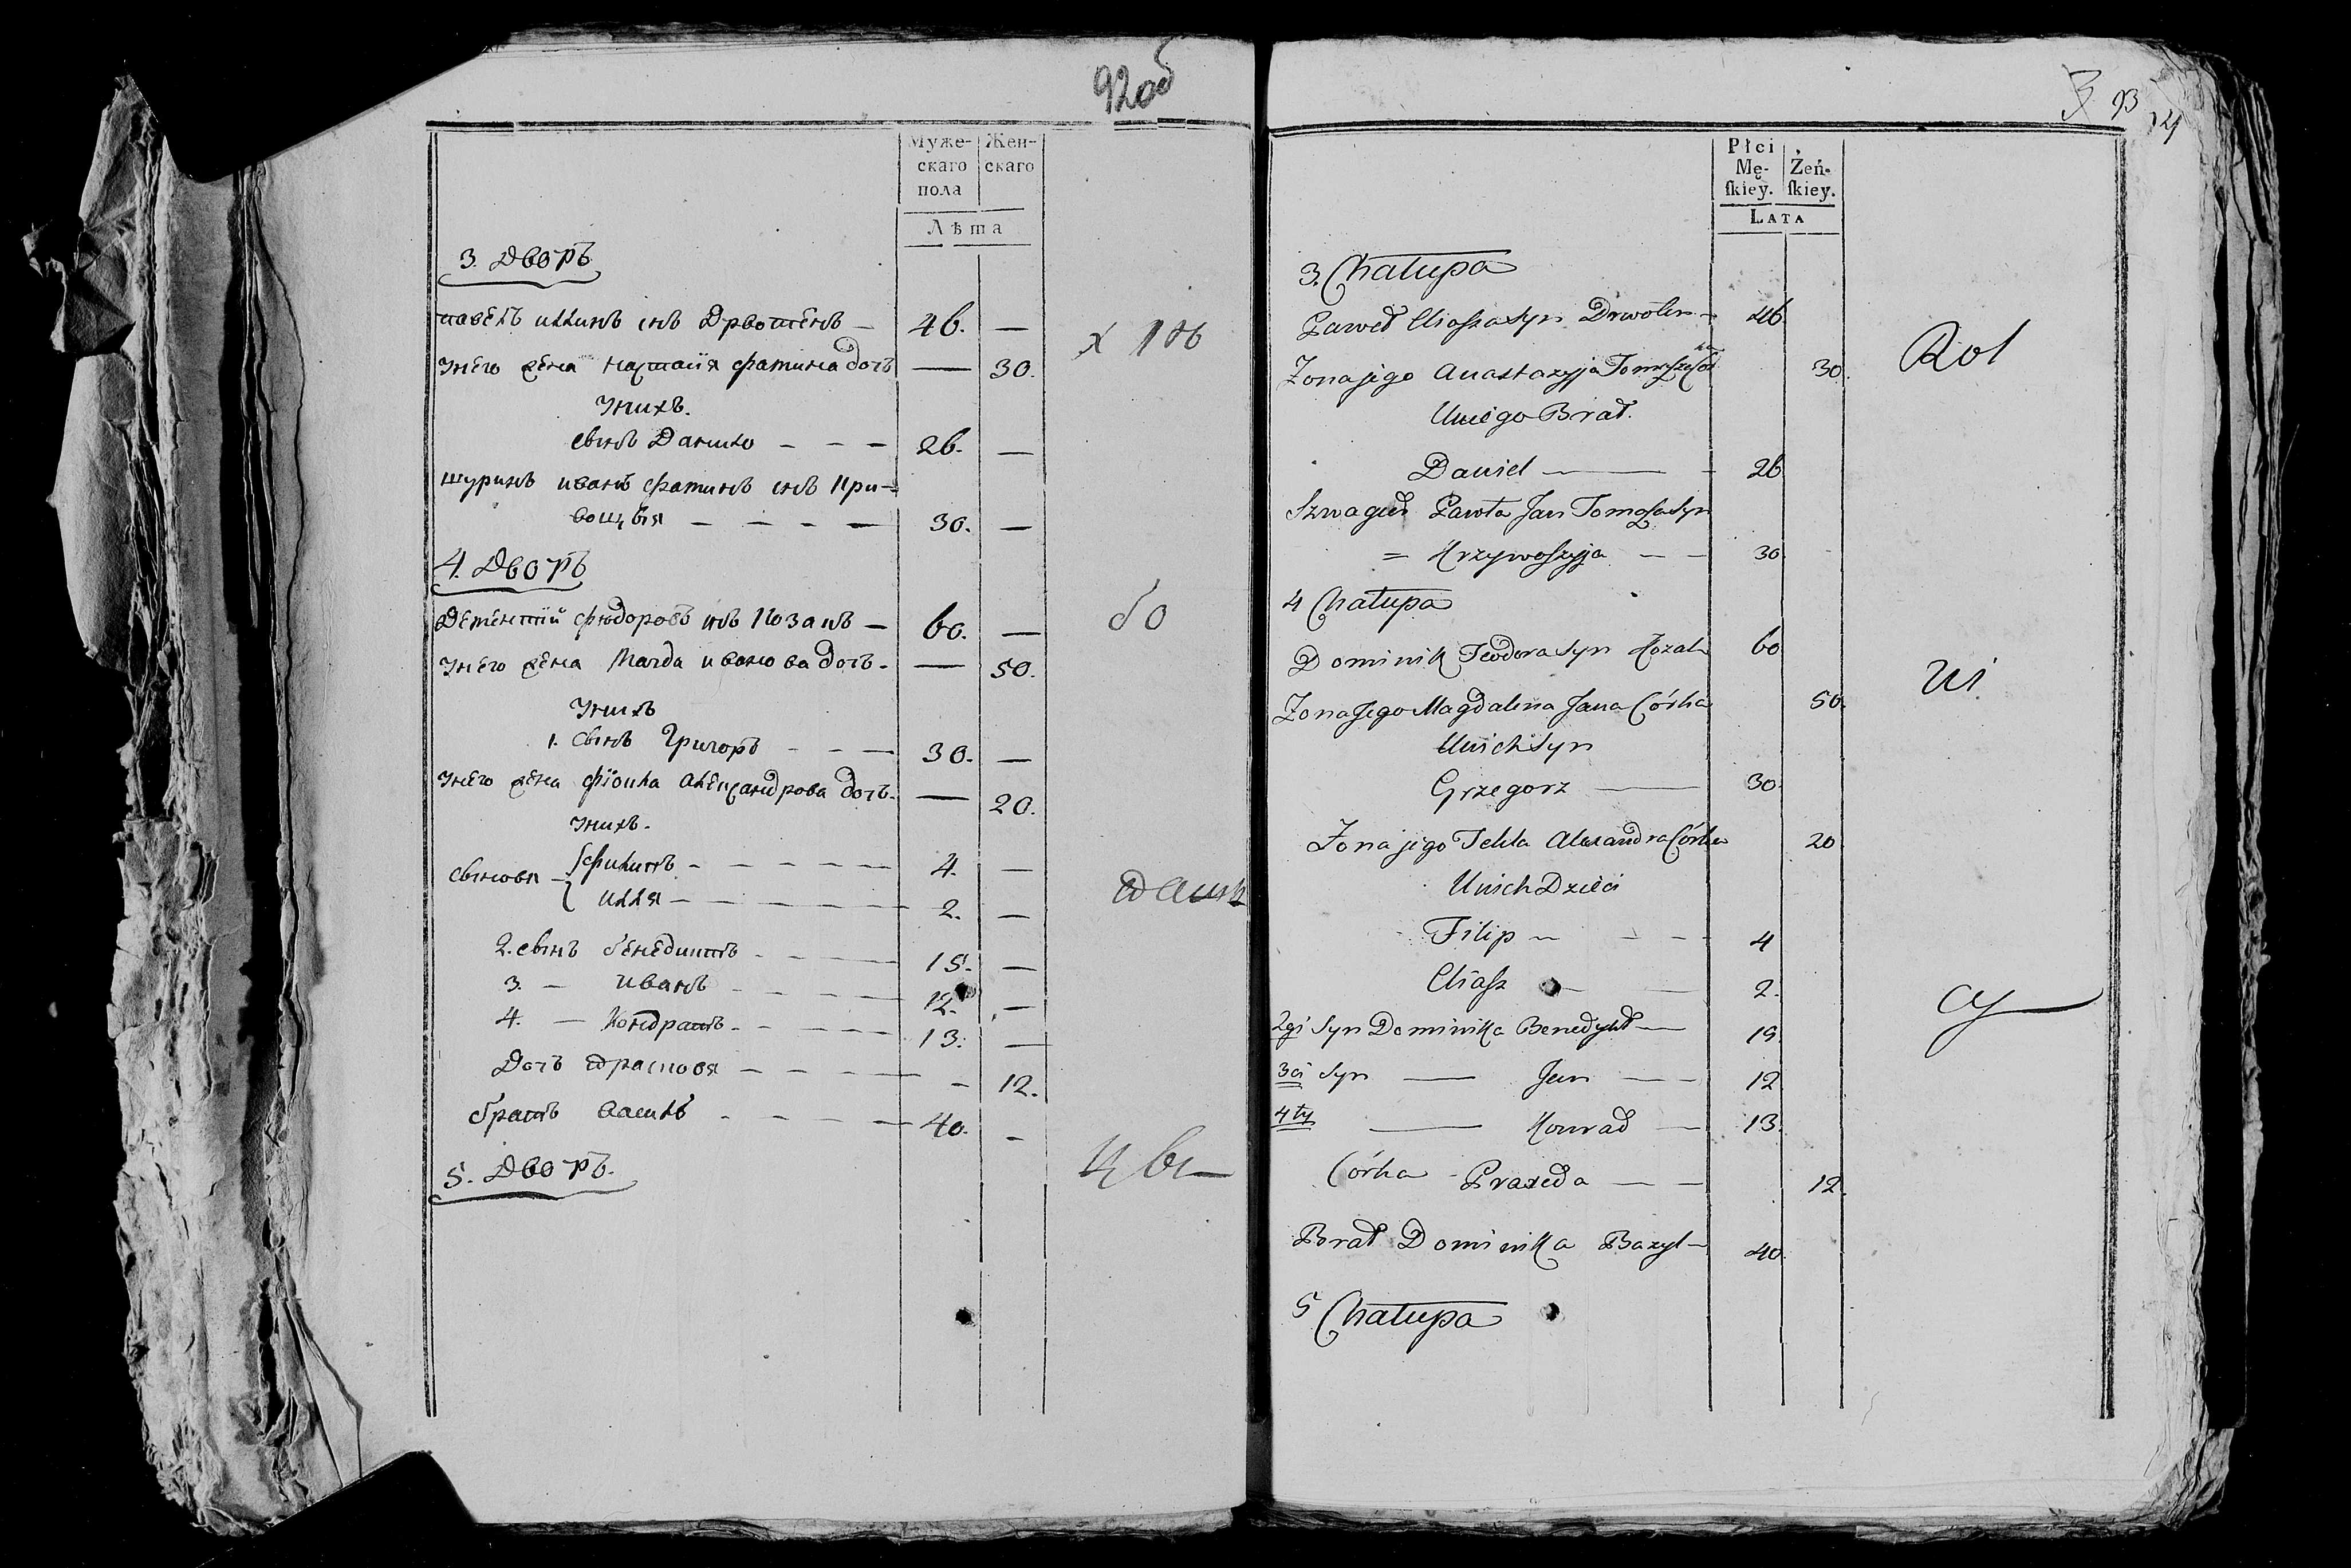 92об
Муже-
скаго
пола
Жен-
скаго
Лѣта
3. Дворъ
павелъ иллинъ снъ Дрвотенъ — 46. —
Унего жена настасія фамина дочъ — 30.
Унихъ.
сынъ Данило — — — 26. —
шуринъ иванъ фаминъ снъ Кри-
вошыя — — — — 30. —
4. Дворъ
Дементій фюдоровъ снъ Козакъ — 60. —
Унего жена Магда иванова дочъ. — 50.
Унихъ
1. сынъ Григоръ — — — 30. —
Унего жена фіокла Александрова дочъ. — 20.
Унихъ.
сыновя — филипъ — — — — — 4. —
илля — — — — — 2. —
2. сынъ бенедиктъ — — — 15. —
3. — иванъ — — — — 12. —
4. — Кондратъ — — — — 13. —
Дочъ — — — — — 12.
братъ василь — — — — 40. —
5. Дворъ.
х
бо
цы
3 93
14
Płci
Mę-
ſkiey.
Żeń-
ſkiey.
LATA
3. Chałupa
Paweł Eliasza Syn Drwoten — 46
Zona jego Anastazyja Tomasza Cór ka 30.
Uniego Brat.
Daniel — — 26
Szwagier Pawła Jan Tomasza Syn
= Krzywoszyja — — 30
4 Chałupa
Dominik Teodora Syn Kozak 60
Zona Jego Magdalena Jana Córka 50.
Unich Syn
Grzegorz — 30.
Zona jego Tekla Alexandra Córka 20
Unich Dzieci
Filip — — — 4
Eliasz — — 2.
2gi Syn Dominika Benedykt — 19.
3ci Syn — Jan — 12
4ty — Konrad — 13.
Córka - Praxeda — — 12.
Brat Dominika Bazyl — 40.
5 Chałupa
Rol
ni
cy